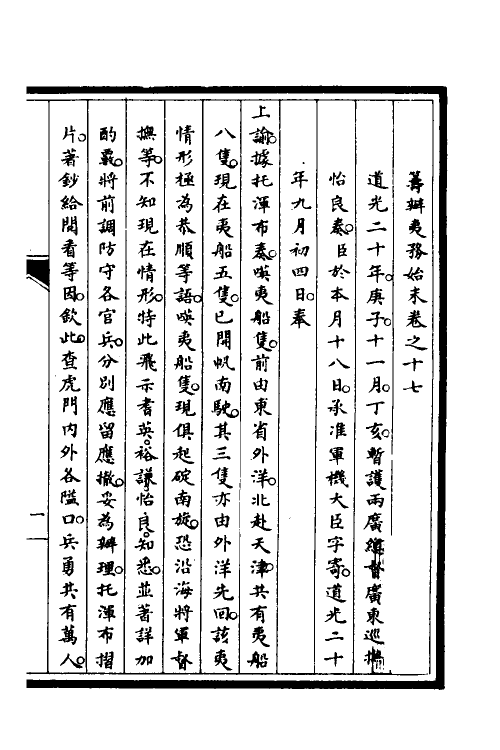 籌辦夷務始末卷之十七
道光二十年。庚子。十一月。丁亥。暫護兩廣總督廣東巡撫
怡良奏。臣於本月十八日。承准軍機大臣字寄。道光二十
年九月初四日。奉
上諭。據托渾布奏。㗸夷船隻。前由東省外洋。北赴天津。共有夷船
八隻。現在夷船五隻。已開帆南駛。其三隻亦由外洋先回。該夷
情形極為恭順等語。㗸夷船隻。現俱起碇南旋。恐沿海將軍督
撫等。不知現在情形。特此飛示耆英。裕謙。怡良。知悉。並著詳加
酌覈。將前調防守各官兵。分別應留應撤。妥為辦理。托渾布摺
片。著鈔給閱看等因。欽此。查虎門內外各隘口。兵勇共有萬人。
一